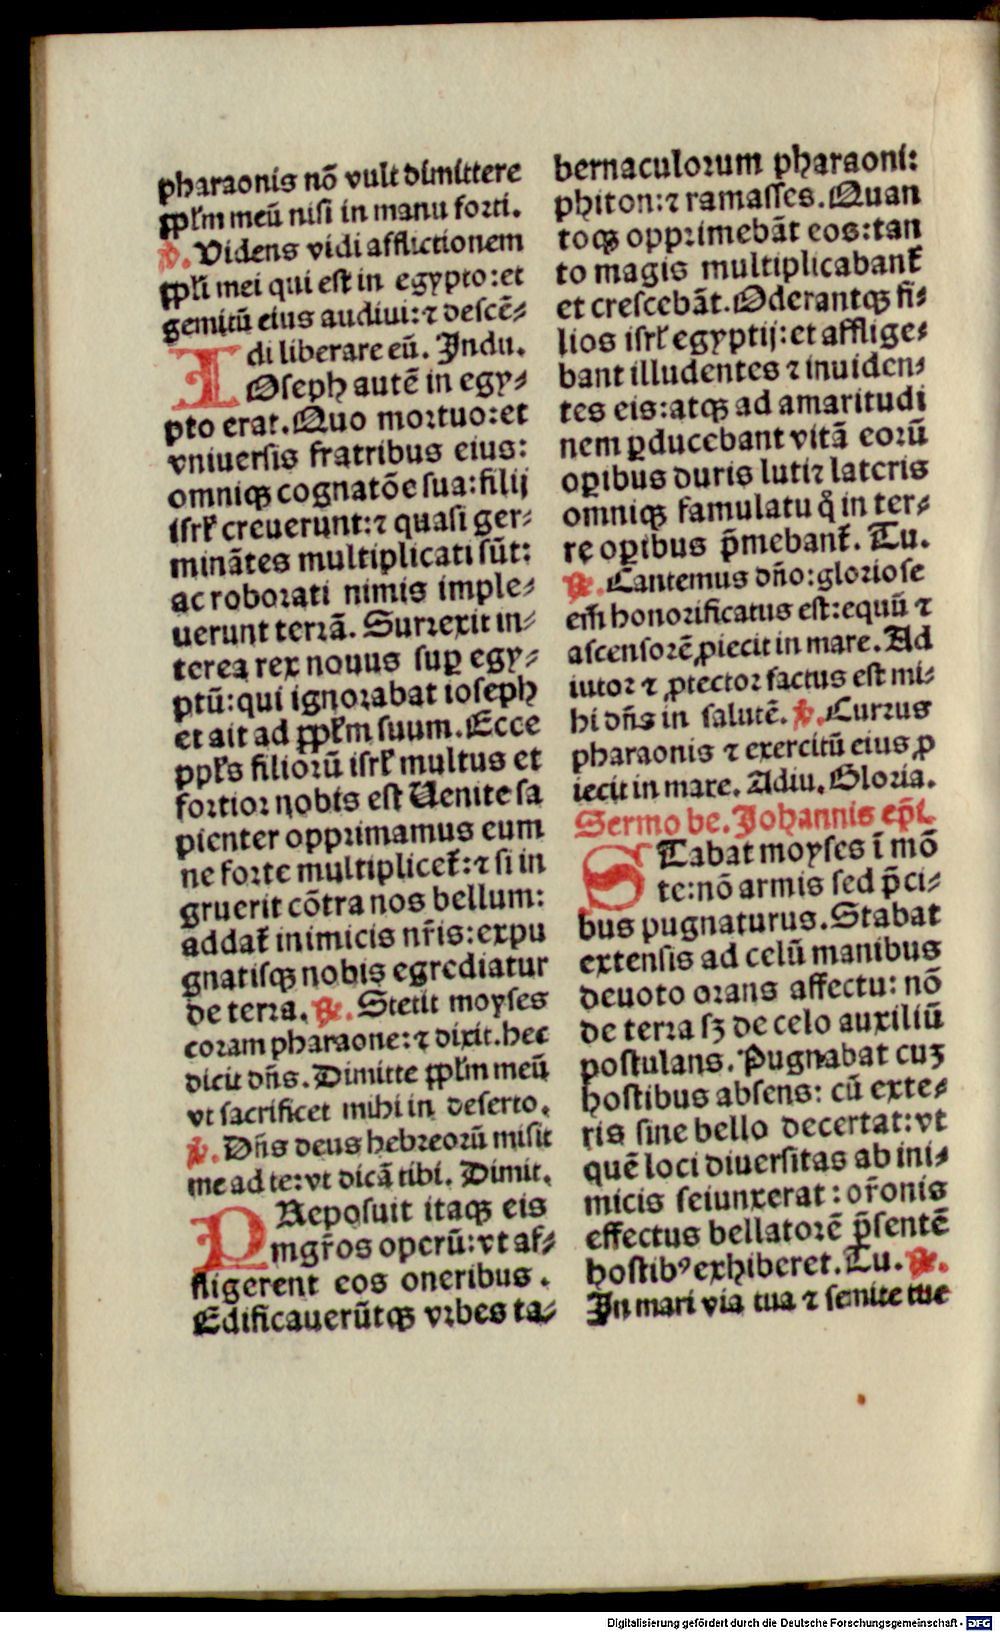 pharaonis nō vult dimittere
ppl̄m meū nisi in manu forti.
℣. Videns vidi afflictionem
ppl̄i mei qui est in egypto: et
gemitū eius audiui: ⁊ descē⸗
di liberare eū. Indu.
IOseph autē in egy⸗
pto erat. Quo mortuo: et
vniuersis fratribus eius:
omniqꝫ cognatōe sua: filij
isrł creuerunt: ⁊ quasi ger⸗
minātes multiplicati sūt:
ac roborati nimis imple⸗
uerunt terrā. Surrexit in⸗
terea rex nouus suꝑ egy⸗
ptū: qui ignorabat ioseph
et ait ad ppl̄m suum. Ecce
ppl̄s filiorū isrł multus et
fortior nobis est Uenite sa
pienter opprimamus eum
ne forte multiplicet̄: ⁊ si in
gruerit cōtra nos bellum:
addat̄ inimicis nr̄is: expu
gnatisqꝫ nobis egrediatur
de terra. ℟. Stetit moyses
coram pharaone: ⁊ dixit. hec
dicit dn̄s. Dimitte ppl̄m meū
vt sacrificet mihi in deserto.
℣. Dn̄s deus hebreorū misit
me ad te: vt dicā tibi. Dimit.
PReposuit itaqꝫ eis
mgr̄os operū: vt af⸗
fligerent eos oneribus.
Edificauerūtqꝫ vrbes ta⸗
bernaculorum pharaoni:
phiton: ⁊ ramasses. Quan
toqꝫ opprimebāt eos: tan
to magis multiplicabant̄
et crescebāt. Oderantqꝫ fi⸗
lios isrł egyptij: et afflige⸗
bant illudentes ⁊ inuiden⸗
tes eis: atqꝫ ad amaritudi
nem ꝑducebant vitā eorū
oꝑibus duris luti ⁊ lateris
omniqꝫ famulatu q̄ in ter⸗
re oꝑibus p̄mebant̄. Tu.
℟. Cantemus dn̄o: gloriose
em̄ honorificatus est: equū ⁊
ascensorē ꝓiecit in mare. Ad
iutor ⁊ ꝓtector factus est mi⸗
hi dn̄s in salutē. ℣. Currus
pharaonis ⁊ exercitū eius ꝓ
iecit in mare. Adiu. Gloria.
Sermo be. Johannis ep̄i.
STabat moyses ī mō
te: nō armis sed p̄ci⸗
bus pugnaturus. Stabat
extensis ad celū manibus
deuoto orans affectu: nō
de terra sꝫ de celo auxiliū
postulans. Pugnabat cuꝫ
hostibus absens: cū exte⸗
ris sine bello decertat: vt
quē loci diuersitas ab ini⸗
micis seiunxerat: or̄onis
effectus bellatorē p̄sentē
hostibꝰ exhiberet. Tu. ℟.
In mari via tua ⁊ semite tue
Digitalisierung gefördert durch die Deutsche Forschungsgemeinschaft - DFG